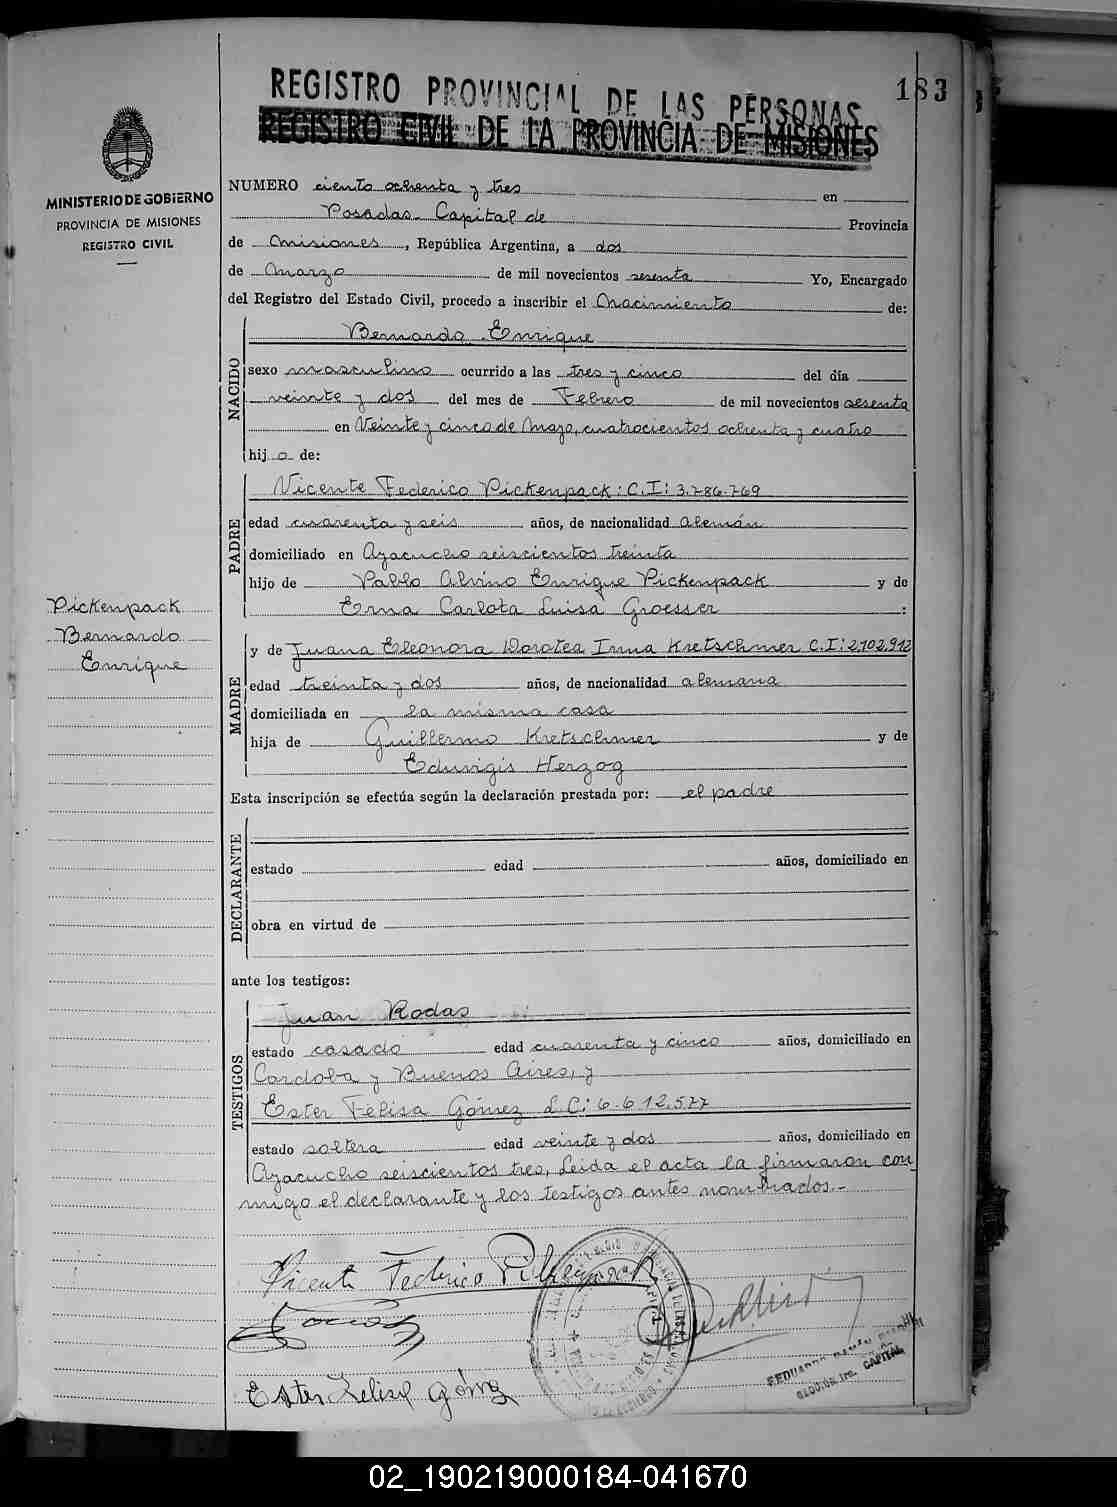 183
REGISTRO PROVINCIAL DE LAS PERSONAS
REGISTRO CIVIL DE LA PROVINCIA DE MISIONES
MINISTERIO DE GOBIERNO
PROVINCIA DE MISIONES
REGISTRO CIVIL
NUMERO ciento ochenta y tres en
Posadas. Capital de Provincia
de Misiones, República Argentina, a dos
de Marzo de mil novecientos sesenta Yo, Encargado
del Registro del Estado Civil, procedo a inscribir el Nacimiento de:
NACIDO
Bernardo Enrique
sexo masculino ocurrido a las tres y cinco del día
veinte y dos del mes de Febrero de mil novecientos sesenta
en Veinte y cinco de Mayo, cuatrocientos ochenta y cuatro
hij o de:
PADRE
Vicente Federico Pickenpack: C.I: 3.786.769
edad cuarenta y seis años, de nacionalidad alemán
domiciliado en Ayacucho seiscientos treinta
hijo de Pablo Alvino Enrique Pickenpack y de
Erna Carlota Luisa Groesser :
Pickenpack
Bernardo
Enrique
MADRE
y de Juana Eleonora Dorotea Irma Kretschmer C.I: 2.102.912
edad treinta y dos años, de nacionalidad alemana
domiciliada en la misma casa
hija de Guillermo Kretschmer y de
Eduvigis Herzog
Esta inscripción se efectúa según la declaración prestada por: el padre
DECLARANTE
estado edad años, domiciliado en
obra en virtud de
ante los testigos:
TESTIGOS
Juan Rodas
estado casado edad cuarenta y cinco años, domiciliado en
Cordoba y Buenos Aires, y
Ester Felisa Gómez L.C: 6.612.577
estado soltera edad veinte y dos años, domiciliado en
Ayacucho seiscientos tres, Leida el acta la firmaron con
migo el declarante y los testigos antes nombrados.-
Vicente Federico Pickenpack
Ester Felisa Gómez
CAPITAL
02_190219000184-041670